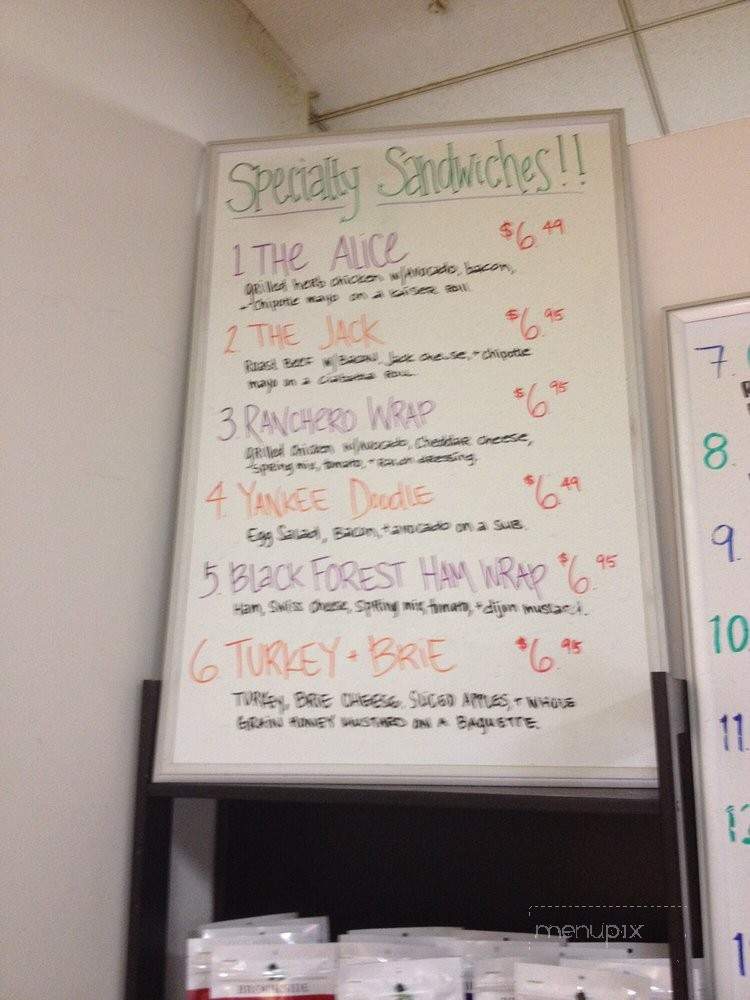 Specialty Sandwiches!!
1 THE ALICE $6.49
Grilled herb chicken w/Avocado, bacon,
+ chipotle mayo on a kaiser roll.
2 THE JACK $6.95
Roast Beef w/Bacon, Jack cheese, + chipotle
mayo on a ciabatta roll.
3. RANCHERO WRAP $6.95
Grilled chicken w/Avocado, Cheddar cheese,
spring mix, tomato, + ranch dressing.
4. YANKEE Doodle $6.49
Egg Salad, Bacon, + avocado on a sub.
5. BLACK FOREST HAM WRAP $6.95
Ham, Swiss cheese, Spring mix, tomato, + dijon mustard.
6 TURKEY + BRIE $6.95
TURKEY, BRIE CHEESE, SLICED APPLES, + WHOLE
GRAIN HONEY MUSTARD ON A BAGUETTE.
7.
8.
9.
10
11.
12
1
BROOKSIDE
menupix